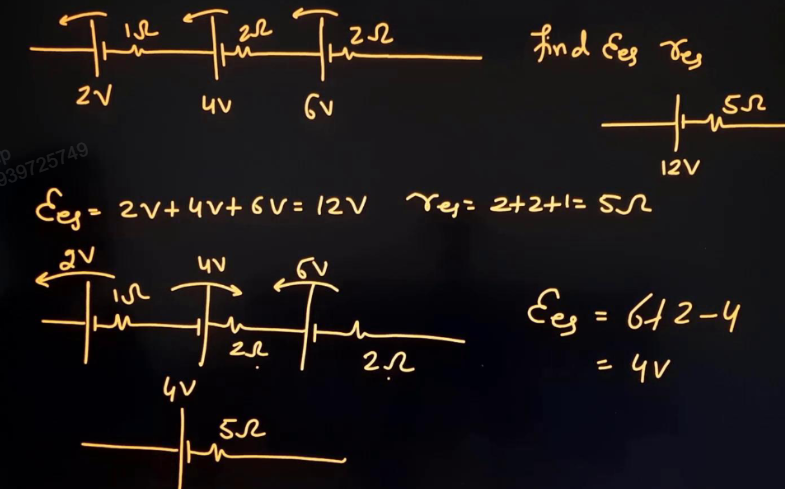 1Ω 2Ω 2Ω find Ɛeq req
2V 4V 6V
5Ω
12V
939725749
Ɛeq = 2V+4V+6V = 12V req = 2+2+1 = 5Ω
2V 4V 6V
1Ω
2Ω 2Ω
Ɛeq = 6+2-4
= 4V
4V
5Ω